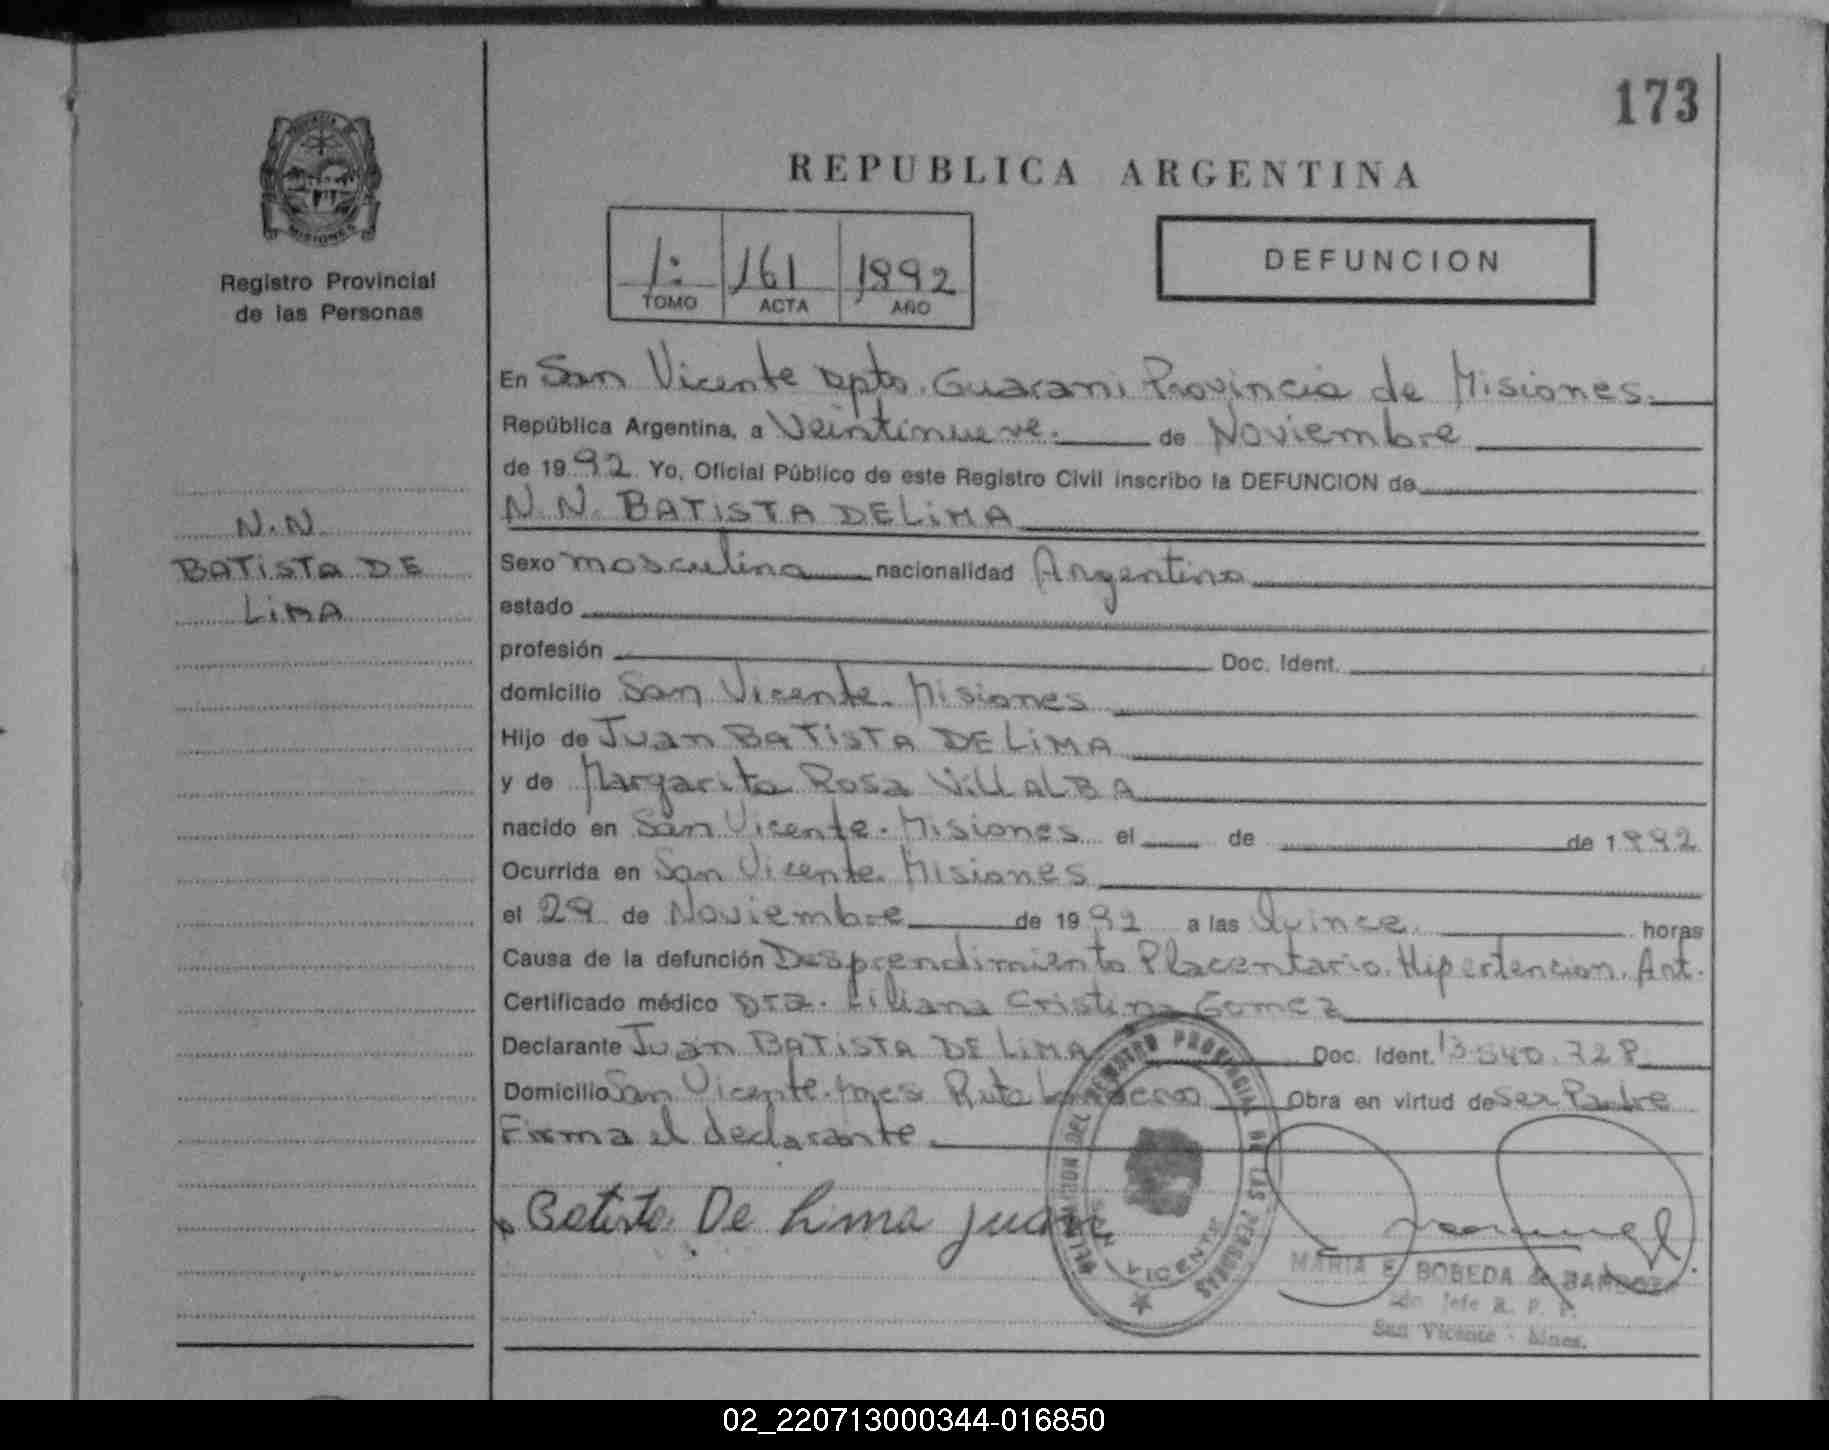 173
REPUBLICA ARGENTINA
PROVINCIA DE
MISIONES
Registro Provincial
de las Personas
1: 161 1992
TOMO ACTA AÑO
DEFUNCION
En San Vicente Dpto. Guarani Provincia de Misiones.
República Argentina, a Veintinueve. de Noviembre
de 1992 Yo, Oficial Público de este Registro Civil inscribo la DEFUNCION de
N.N. BATISTA DE LiMA
N.N.
BATISTA DE
LiMA
Sexo masculino nacionalidad Argentina
estado
profesión Doc. Ident.
domicilio San Vicente. Misiones
Hijo de Juan BATISTA DE LiMA
y de Margarita Rosa VILLALBA
nacido en San Vicente. Misiones el de de 1992
Ocurrida en San Vicente. Misiones
el 29 de Noviembre de 1992 a las Quince. horas
Causa de la defunción Desprendimiento Placentario. Hipertencion. Ant.
Certificado médico Dra. Liliana Cristina Gomez
Declarante Juan BATISTA DE LiMA Doc. Ident. 13.540.728
Domicilio San Vicente. Mnes Ruta Obra en virtud de ser Padre
Firma el declarante.
Batista De Lima juan
DELEGACION DEL REGISTRO PROVINCIAL DE LAS PERSONAS
SAN VICENTE
MARIA E. BOBEDA de BARBOZA
2do. Jefe R. P. P.
San Vicente - Mnes.
02_220713000344-016850